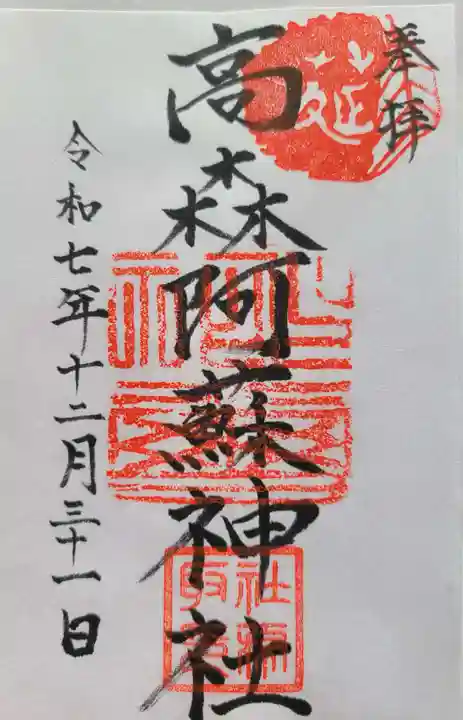 奉拝
高森阿蘇神社
令和七年十二月三十一日